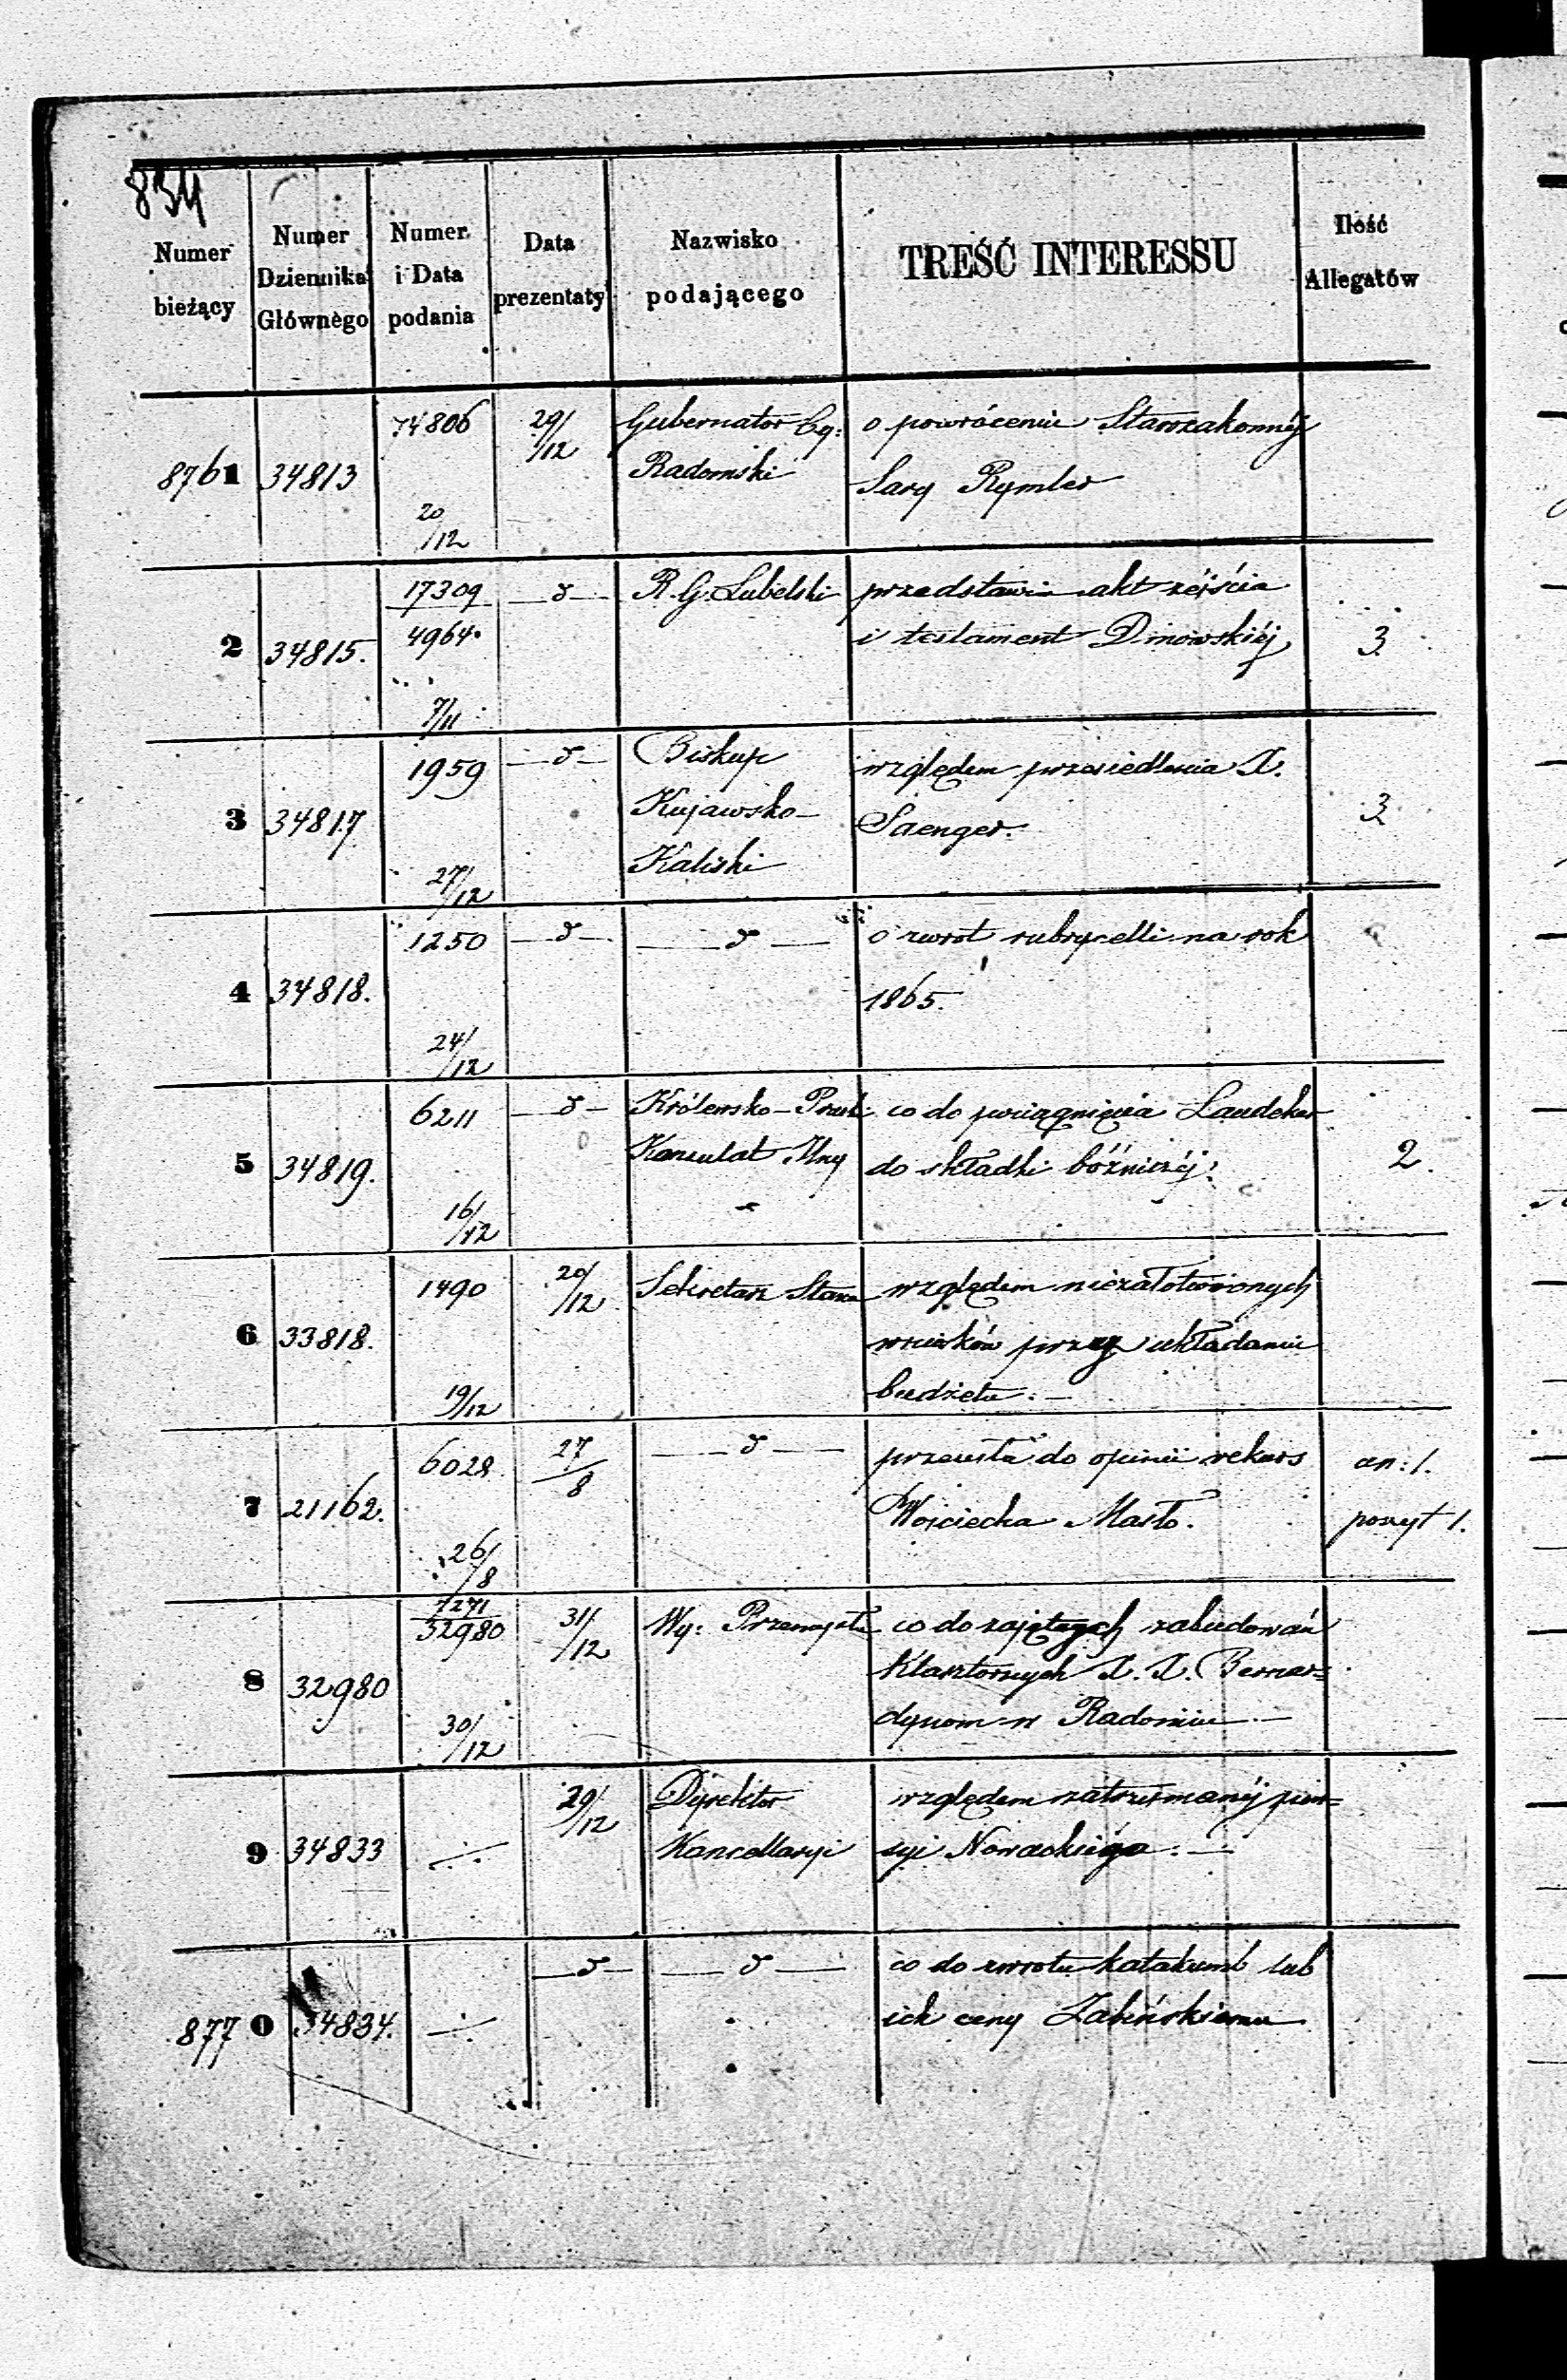 834
Numer bieżący
Numer Dziennika Głównego
Numer i Data podania
Data prezentaty
Nazwisko podającego
TREŚĆ INTERESSU
Ilość Allegatów
8761 34813 74806 20/12 29/12 Gubernator Cy: Radomski
o powrócenie Starozakonnéj
Sary Rymler
2 34815. 17309 4964 7/11 —d— R. G. Lubelski
przedstawia akt zéjścia
i testament Dmowskiéj 3
3 34817 1959 27/12 —d— Biskup Kujawsko-Kaliski
względem przesiedlenia X.
Saenger. 3
4 34818. 1250 24/12 —d— —d—
o zwrot rubrycelli na rok
1865.
5 34819. 6211 16/12 —d— Królewsko-Prusk Konsulat Jlny
co do pociągnięcia Landeker
do składki bóźniczéj. 2.
6 33818. 1490 19/12 20/12 Sekretarz Stanu
względem niezałatwionych
wniosków przy układaniu
budżetu.—
7 21162. 6028 26/8 27/8 —d—
przesyła do opinii rekurs
Wojciecha Masło.
an: 1.
poszyt 1.
8 32980 7271 32980 30/12 31/12 Wy: Przemysłu
co do zajętych zabudowań
klasztornych X. X. Bernar=
dynom w Radomiu—
9 34833 ./. 29/12 Dyrektor Kancellaryi
względem zatrzymanéj pen=
syi Nowackiégo.—
8770 34834. ./. —d— —d—
co do zwrotu katakumb lub
ich ceny Zabińskiemu